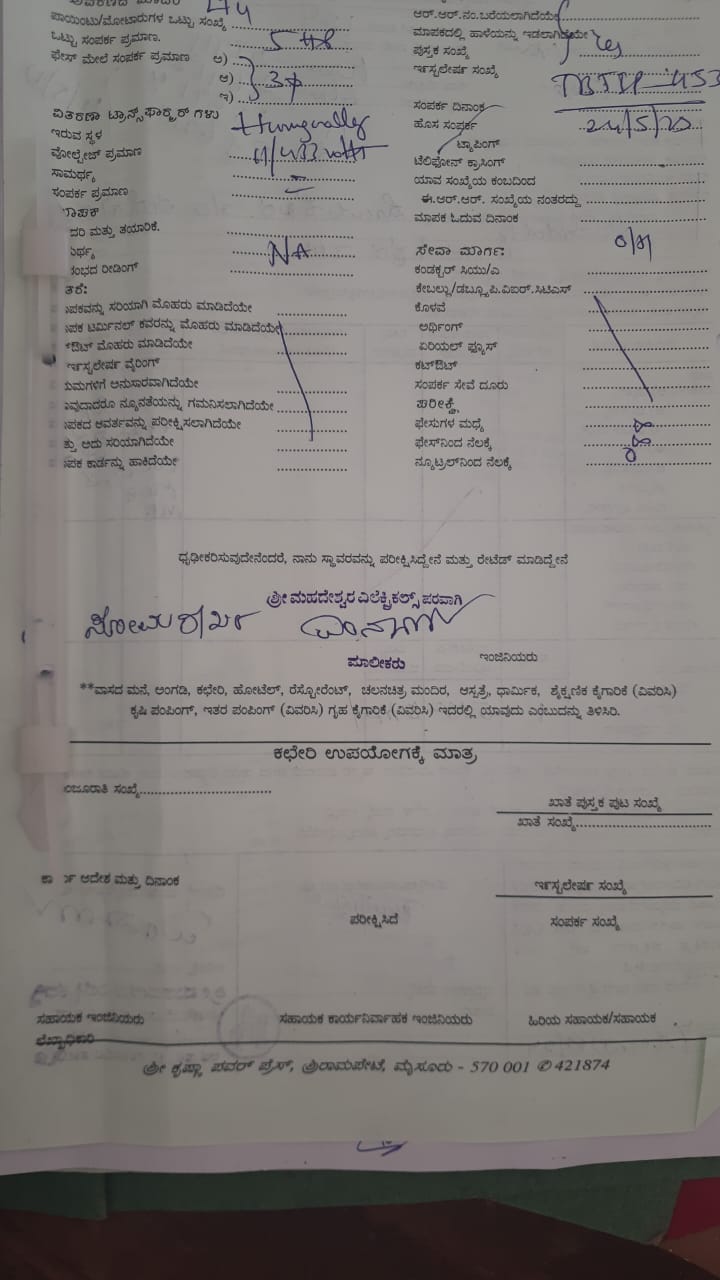 LT4
ಪಾಯಿಂಟು/ಮೋಟಾರುಗಳ ಒಟ್ಟು ಸಂಖ್ಯೆ
ಒಟ್ಟು ಸಂಪರ್ಕ ಪ್ರಮಾಣ. 5 HP
ಫೇಸ್ ಮೇಲೆ ಸಂಪರ್ಕ ಪ್ರಮಾಣ ಅ)
ಆ) 3φ
ಇ)
ವಿತರಣಾ ಟ್ರಾನ್ಸ್‌ಫಾರ್‍ಮರ್ ಗಳು
ಇರುವ ಸ್ಥಳ
ವೋಲ್ಟೇಜ್ ಪ್ರಮಾಣ 11/433 volts
ಸಾಮರ್ಥ್ಯ
ಸಂಪರ್ಕ ಪ್ರಮಾಣ
ಮಾಪಕ
ದರಿ ಮತ್ತು ತಯಾರಿಕೆ.
ರ್ಥ್ಯ NA
ಂಭದ ರೀಡಿಂಗ್
ತರೆ:
ಪಕವನ್ನು ಸರಿಯಾಗಿ ಮೊಹರು ಮಾಡಿದೆಯೇ
ಪಕ ಟರ್ಮಿನಲ್ ಕವರನ್ನು ಮೊಹರು ಮಾಡಿದೆಯೇ
ಔಟ್ ಮೊಹರು ಮಾಡಿದೆಯೇ
ಇನ್ಸ್ಟಲೇಷನ್ ವೈರಿಂಗ್
ಯಮಗಳಿಗೆ ಅನುಸಾರವಾಗಿದೆಯೇ
ವುದಾದರೂ ನ್ಯೂನತೆಯನ್ನು ಗಮನಿಸಲಾಗಿದೆಯೇ
ಪಕದ ಆವರ್ತವನ್ನು ಪರೀಕ್ಷಿಸಲಾಗಿದೆಯೇ
ತ್ತು ಅದು ಸರಿಯಾಗಿದೆಯೇ
ಪಕ ಕಾರ್ಡನ್ನು ಹಾಕಿದೆಯೇ
ಆರ್.ಆರ್.ನಂ.ಬರೆಯಲಾಗಿದೆಯೇ
ಮಾಪಕದಲ್ಲಿ ಹಾಳೆಯನ್ನು ಇಡಲಾಗಿದೆಯೇ Yes
ಪುಸ್ತಕ ಸಂಖ್ಯೆ
ಇನ್ಸ್ಟಲೇಷನ್ ಸಂಖ್ಯೆ
ಸಂಪರ್ಕ ದಿನಾಂಕ
ಹೊಸ ಸಂಪರ್ಕ 24/5/20
ಟ್ಯಾಪಿಂಗ್
ಟೆಲಿಫೋನ್ ಕ್ರಾಸಿಂಗ್
ಯಾವ ಸಂಖ್ಯೆಯ ಕಂಬದಿಂದ
ಈ.ಆರ್.ಆರ್. ಸಂಖ್ಯೆಯ ನಂತರದ್ದು
ಮಾಪಕ ಓದುವ ದಿನಾಂಕ
ಸೇವಾ ಮಾರ್ಗ:
ಕಂಡಕ್ಟರ್ ಸಿಯು/ಎ
ಕೇಬಲ್ಲು/ಡಬ್ಲ್ಯೂ.ಪಿ.ವಿಐಆರ್.ಸಿಟಿಎಸ್
ಕೊಳವೆ
ಅರ್ಥಿಂಗ್
ಏರಿಯಲ್ ಫ್ಯೂಸ್
ಕಟ್‌ಔಟ್
ಸಂಪರ್ಕ ಸೇವೆ ದೂರು
ಪರೀಕ್ಷೆ
ಫೇಸುಗಳ ಮಧ್ಯೆ
ಫೇಸ್‌ನಿಂದ ನೆಲಕ್ಕೆ
ನ್ಯೂಟ್ರಲ್‌ನಿಂದ ನೆಲಕ್ಕೆ
ಧೃಢೀಕರಿಸುವುದೇನೆಂದರೆ, ನಾನು ಸ್ಥಾವರವನ್ನು ಪರೀಕ್ಷಿಸಿದ್ದೇನೆ ಮತ್ತು ರೇಟೆಡ್ ಮಾಡಿದ್ದೇನೆ
ಶ್ರೀ ಮಹದೇಶ್ವರ ಎಲೆಕ್ಟ್ರಿಕಲ್ಸ್ ಪರವಾಗಿ
ಮಾಲೀಕರು ಇಂಜಿನಿಯರು
**ವಾಸದ ಮನೆ, ಅಂಗಡಿ, ಕಛೇರಿ, ಹೋಟೆಲ್, ರೆಸ್ಟೋರೆಂಟ್, ಚಲನಚಿತ್ರ ಮಂದಿರ, ಆಸ್ಪತ್ರೆ, ಧಾರ್ಮಿಕ, ಶೈಕ್ಷಣಿಕ ಕೈಗಾರಿಕೆ (ವಿವರಿಸಿ)
ಕೃಷಿ ಪಂಪಿಂಗ್, ಇತರ ಪಂಪಿಂಗ್ (ವಿವರಿಸಿ) ಗೃಹ ಕೈಗಾರಿಕೆ (ವಿವರಿಸಿ) ಇದರಲ್ಲಿ ಯಾವುದು ಎಂಬುದನ್ನು ತಿಳಿಸಿರಿ.
ಕಛೇರಿ ಉಪಯೋಗಕ್ಕೆ ಮಾತ್ರ
ಂಜೂರಾತಿ ಸಂಖ್ಯೆ
ಖಾತೆ ಪುಸ್ತಕ ಪುಟ ಸಂಖ್ಯೆ
ಖಾತೆ ಸಂಖ್ಯೆ
ಆದೇಶ ಮತ್ತು ದಿನಾಂಕ
ಇನ್ಸ್ಟಲೇಷನ್ ಸಂಖ್ಯೆ
ಪರೀಕ್ಷಿಸಿದೆ ಸಂಪರ್ಕ ಸಂಖ್ಯೆ
ಸಹಾಯಕ ಇಂಜಿನಿಯರು ಸಹಾಯಕ ಕಾರ್ಯನಿರ್ವಾಹಕ ಇಂಜಿನಿಯರು ಹಿರಿಯ ಸಹಾಯಕ/ಸಹಾಯಕ
ಲೆಖ್ಖಾಧಿಕಾರಿ
ಶ್ರೀ ಕೃಷ್ಣಾ ಪವರ್ ಪ್ರೆಸ್, ಶ್ರೀರಾಮಪೇಟೆ, ಮೈಸೂರು - 570 001 ✆ 421874